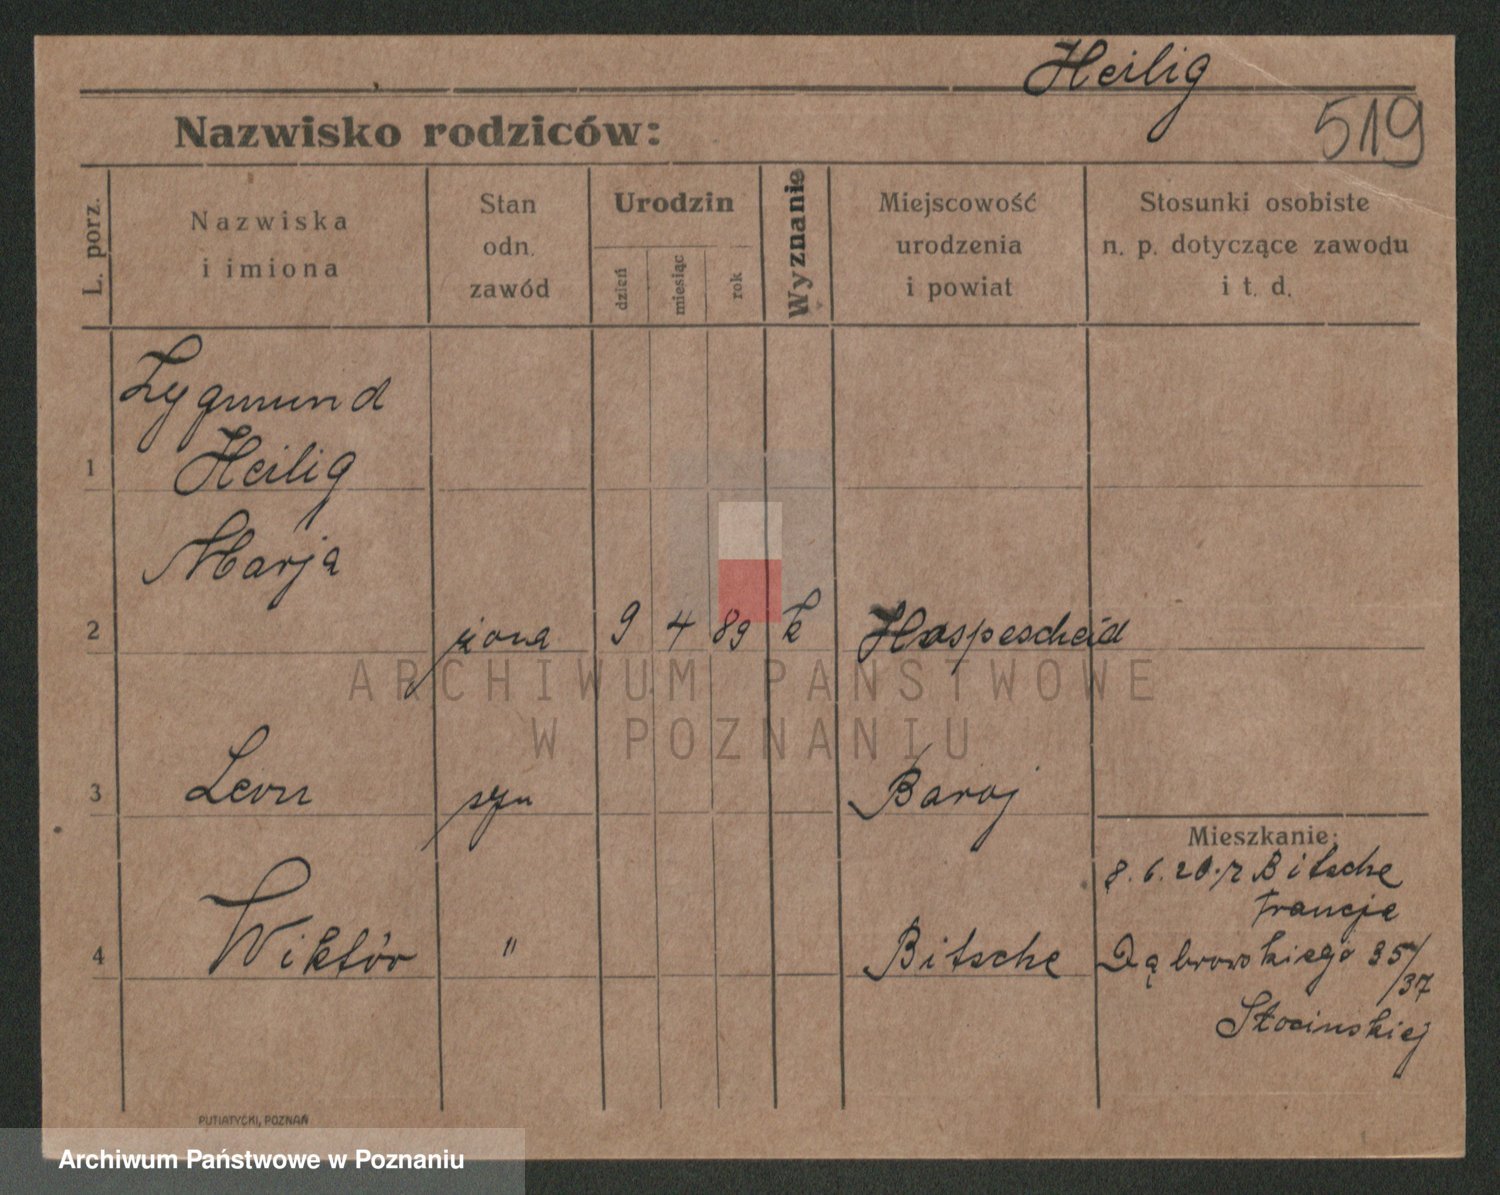 Heilig
519
Nazwisko rodziców:
L. porz.
Nazwiska
i imiona
Stan
odn.
zawód
Urodzin
dzień
miesiąc
rok
Wyznanie
Miejscowość
urodzenia
i powiat
Stosunki osobiste
n. p. dotyczące zawodu
i t. d.
Zygmund
1 Heilig
Marja
2 żona 9 4 89 k Haspescheid
ARCHIWUM PAŃSTWOWE
W POZNANIU
3 Leon syn Baroj
Mieszkanie:
8. 6. 20. z Bitsche
Francje
4 Wiktór " Bitsche Dąbrowskiego 35/
/37
Słocinskiej
PUTIATYCKI, POZNAŃ
Archiwum Państwowe w Poznaniu